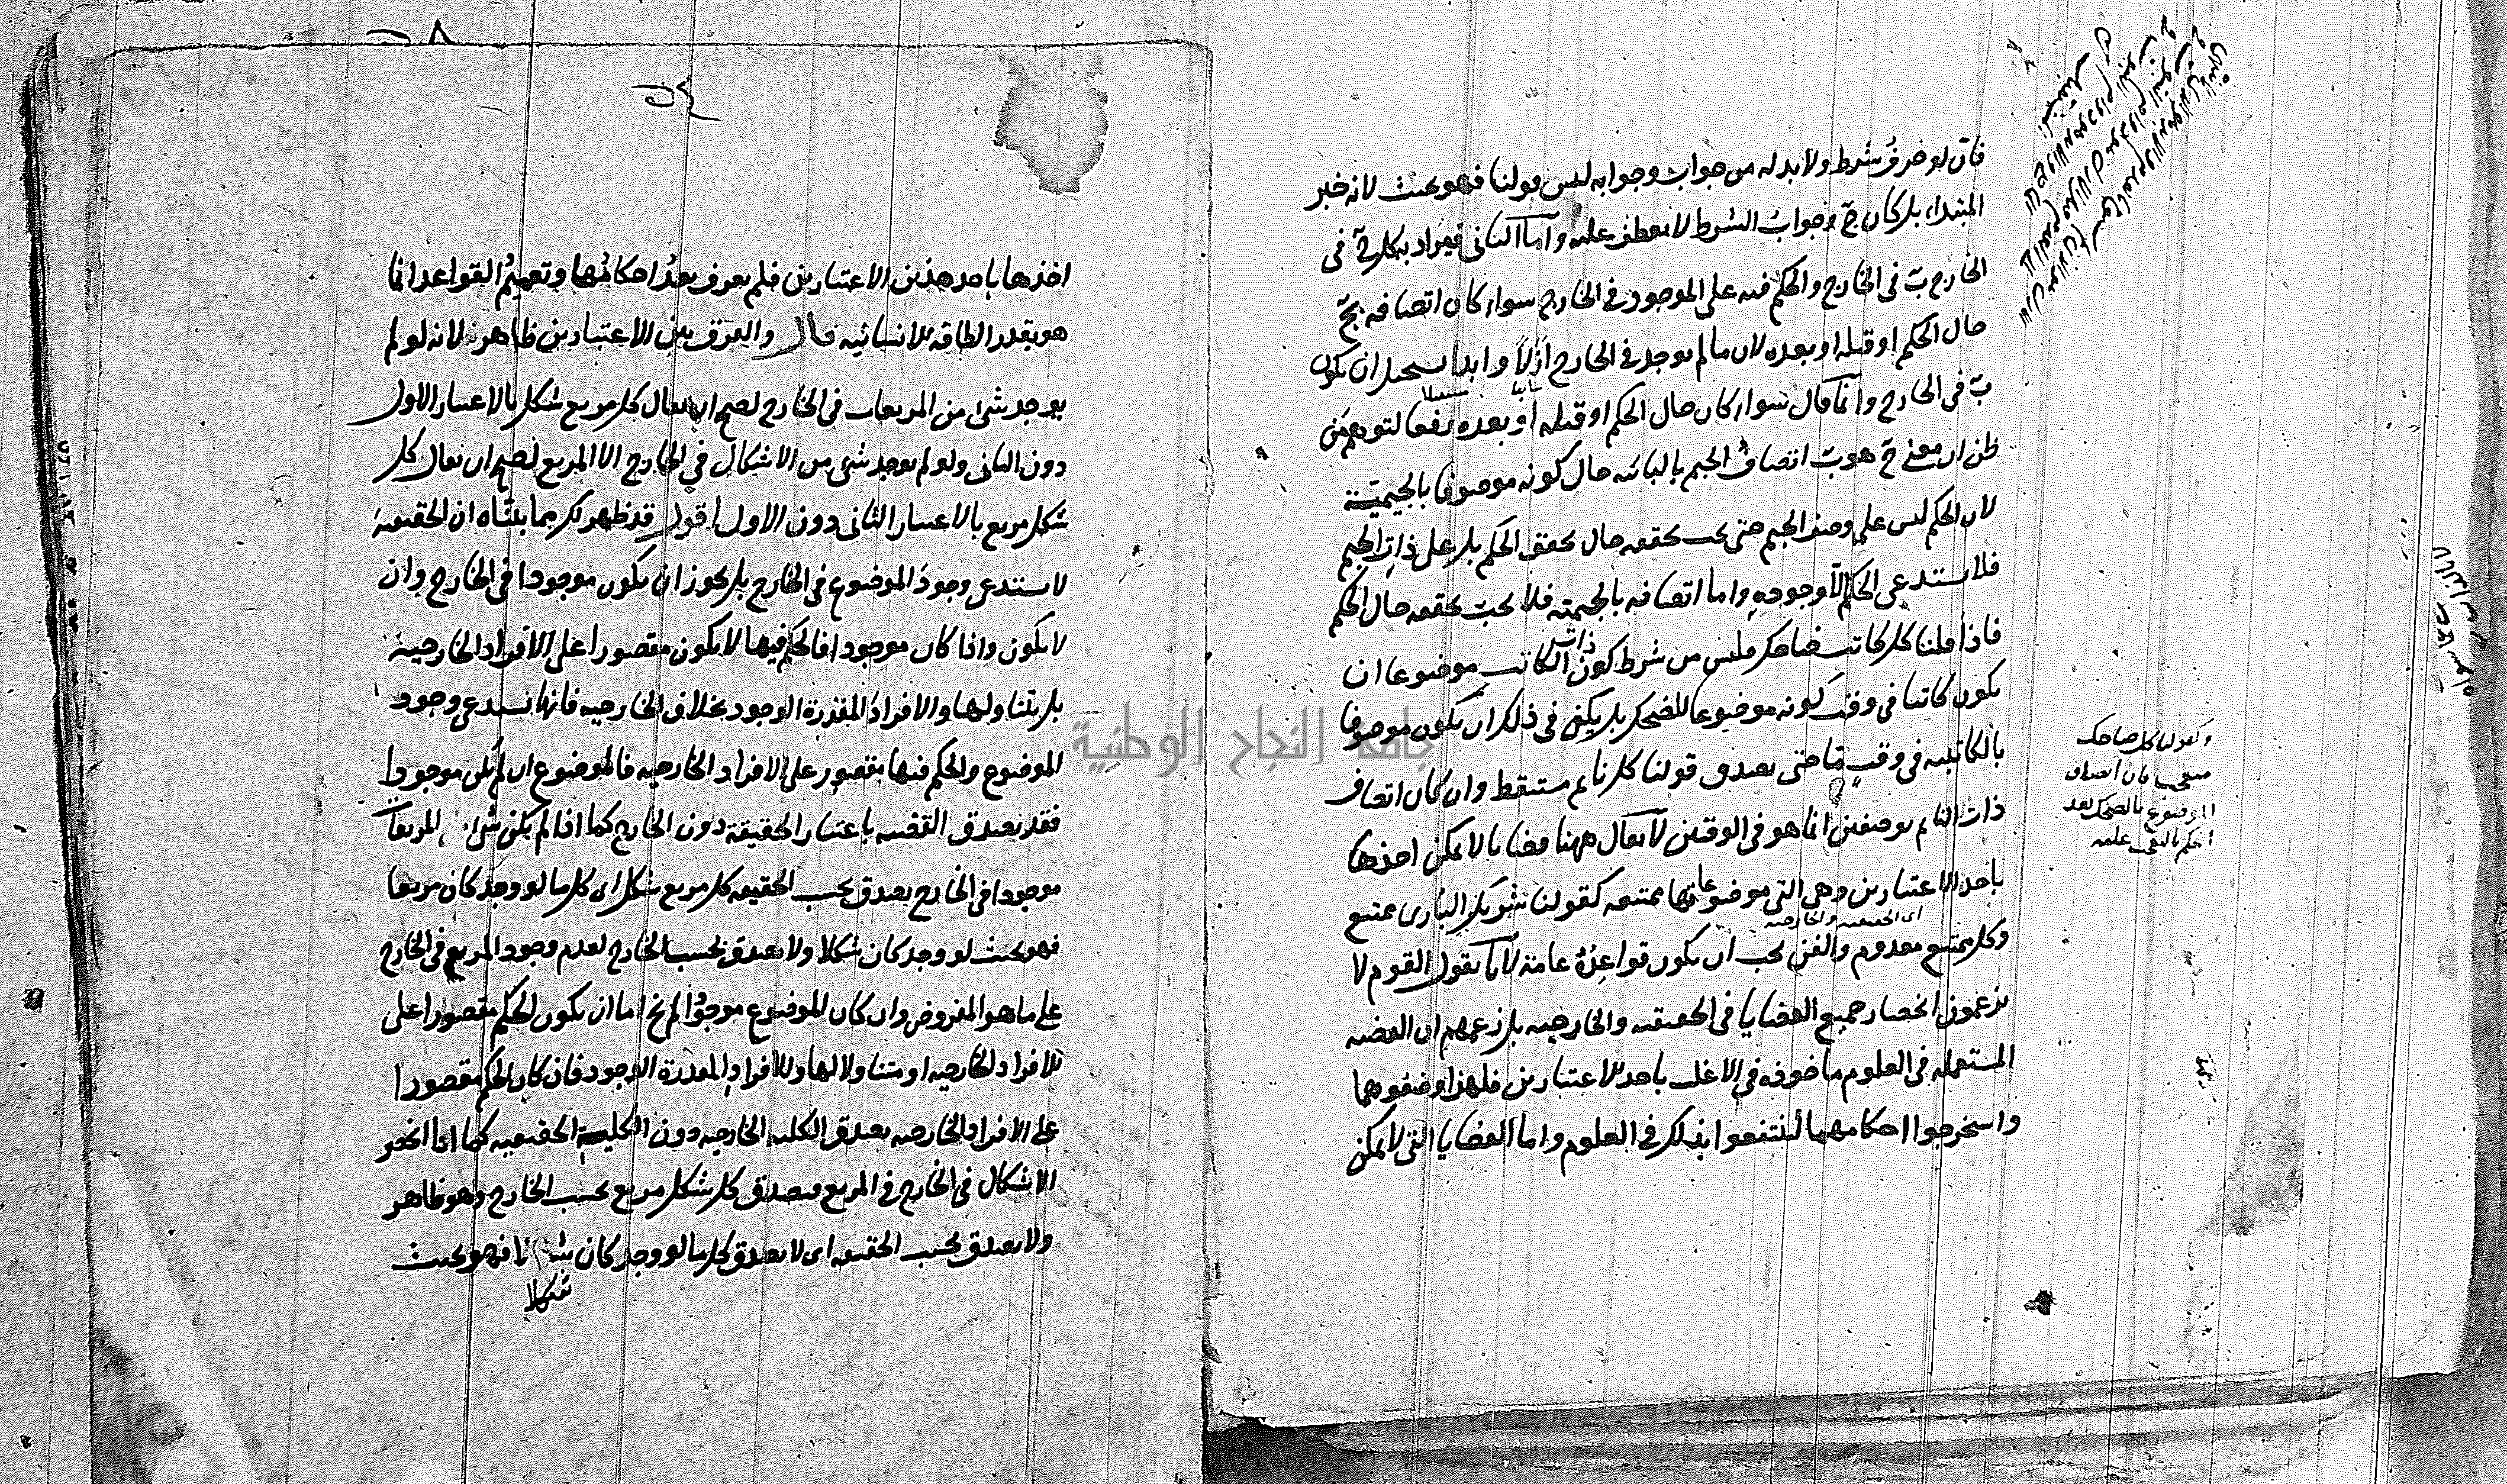 فان لو حرف شرط ولا بد له من جواب وجوابه ليس قولنا فهو بحيث لانه خبر
المبتداء بل كان ج وجواب الشرط لا يعطف عليه واما الثانى فيراد به كل ج فى
الخارج ب فى الخارج والحكم فيه على الموجود فى الخارج سواء كان اتصافه بج
حال الحكم او قبله او بعده لان ما لم يوجد فى الخارج ازلا وابدا يستحيل ان يكون
ب فى الخارج وانما قال سواء كان حال الحكم او قبله او بعده دفعا لتوهم من
ظن ان معنى ج هو ب اتصاف الجيم بالبائيه حال كونه موصوفا بالجيميّة
لان الحكم ليس على وصف الجيم حتى يجب تحققه حال تحقق الحكم بل على ذات الجيم
فلا يستدعى الحكم الا وجوده واما اتصافه بالجيميه فلا يجب تحققه حال الحكم
فاذا قلنا كل كاتب ضاحك فليس من شرط كون ذات الكاتب موضوعا ان
يكون كاتبا فى وقت كونه موضوعا للضحك بل يكفى فى ذلك ان يكون موصوفا
بالكاتبيه فى وقت ما حتى يصدق قولنا كل نائم مستيقظ وان كان اتصاف
ذات النائم بوصفين انما هو فى الوقتين لا يقال ههنا قضايا لا يمكن اخذها
باحد الاعتبارين وهى التى موضوعاتها ممتنعه كقولنا شريك البارى ممتنع
اى الحقيقيه والخارجيه
وكل ممتنع معدوم والفن يجب ان يكون قواعده عامة لانا نقول القوم لا
يزعمون انحصار جميع القضايا فى الحقيقيه والخارجيه بل زعمهم ان القضيه
المستعمله فى العلوم ماخوذه فى الاغلب باحد الاعتبارين فلهذا وضعوهما
واستخرجوا احكامهما لينتفعوا بذلك فى العلوم واما القضايا التى لا يمكن
وكقولنا كل ضاحك
متعجب فان اتصاف
الموضوع بالضحك بعد
الحكم بالتعجب عليه
اخذها باحد هذين الاعتبارين فلم يعرف بعد احكامها وتعميم القواعد انما
هو بقدر الطاقه الانسانيه قال والفرق بين الاعتبارين ظاهر لانه لو لم
يوجد شئ من المربعات فى الخارج لصح ان يقال كل مربع شكل بالاعتبار الاول
دون الثانى ولو لم يوجد شئ من الاشكال فى الخارج الا المربع لصح ان يقال كل
شكل مربع بالاعتبار الثانى دون الاول اقول قد ظهر لك مما بيّنّاه ان الحقيقية
لا يستدعى وجود الموضوع فى الخارج بل يجوز ان يكون موجودا فى الخارج وان
لا يكون واذا كان موجودا فالحكم فيها لا يكون مقصورا على الافراد الخارجية
بل يتناولها والافراد المقدرة الوجود بخلاف الخارجيه فانها تستدعى وجود
الموضوع والحكم فيها مقصور على الافراد الخارجيه فالموضوع ان لم يكن موجودا
فقد يصدق القضيه باعتبار الحقيقة دون الخارج كما اذا لم يكن شئ المربعات
موجودا فى الخارج يصدق بحسب الحقيقه كل مربع شكل اى كل ما لو وجد كان مربعا
فهو بحيث لو وجد كان شكلا ولا يصدق بحسب الخارج لعدم وجود المربع فى الخارج
على ما هو المفروض وان كان الموضوع موجودا لم يخ اما ان يكون الحكم مقصورا على
الافراد الخارجيه او متناولا لها وللافراد المقدرة الوجود فان كان الحكم مقصورا
على الافراد الخارجيه يصدق الكليه الخارجيه دون الكلية الحقيقيه كما اذا انحصر
الاشكال فى الخارج فى المربع فيصدق كل شكل مربع بحسب الخارج وهو ظاهر
ولا يصدق بحسب الحقيقه اى لا يصدق كل ما لو وجد كان فهو بحيث
شكلا
جامعة النجاح الوطنية